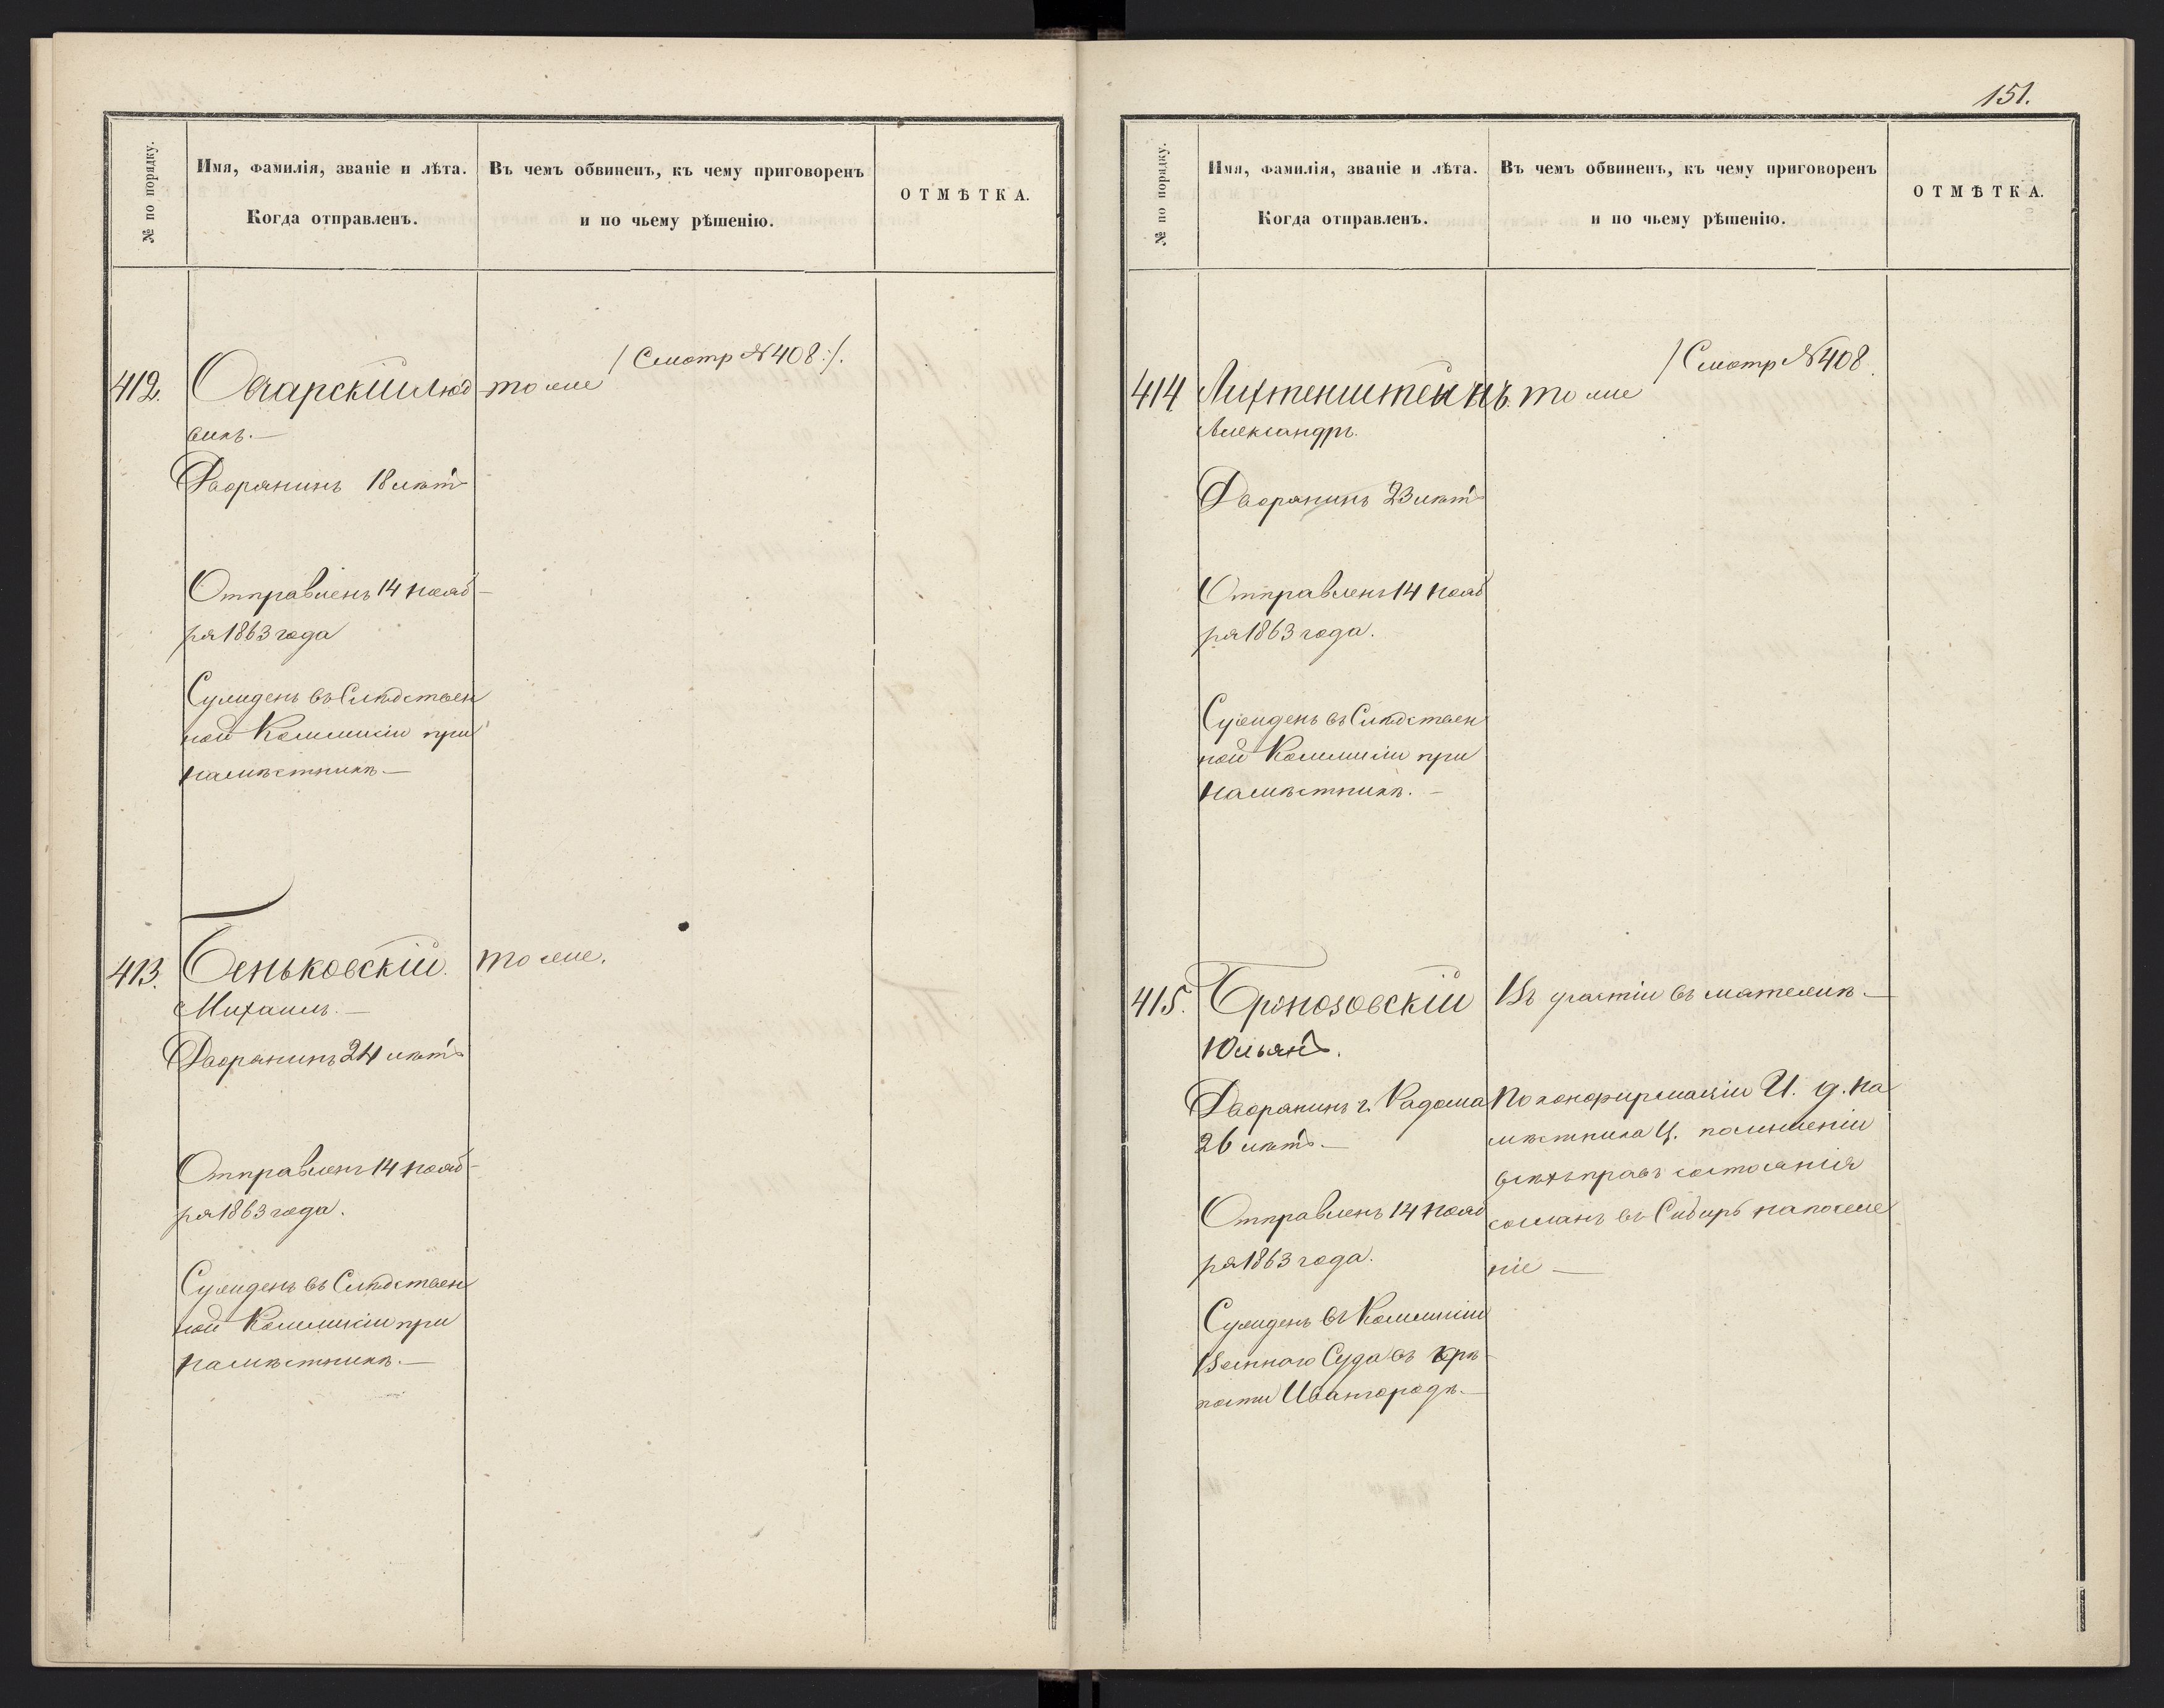 № по порядку.
Имя, фамилія, званіе и лѣта.
Когда отправленъ.
Въ чемъ обвиненъ, къ чему приговоренъ
и по чьему рѣшенію.
ОТМѢТКА.
412. Овчарскій Люд
викъ. —
тоже
/Смотр № 408:/.
Дворянинъ 18 лѣтъ
Отправленъ 14 нояб-
ря 1863 года
Сужденъ въ Слѣдствен
ной Коммисіи при
намѣстникѣ. —
413. Беньковскій.
тоже.
Михаилъ. —
Дворянинъ 24 лѣтъ
Отправленъ 14 нояб-
ря 1863 года.
Сужденъ въ Слѣдствен
ной Коммисіи при
намѣстникѣ. —
151.
№ по порядку.
Имя, фамилія, званіе и лѣта.
Когда отправленъ.
Въ чемъ обвиненъ, къ чему приговоренъ
и по чьему рѣшенію.
ОТМѢТКА.
414 Лихтенштейнъ.
Александръ.
тоже
/Смотр № 408.
Дворянинъ 23 лѣтъ
Отправленъ 14 нояб
ря 1863 года.
Сужденъ въ Слѣдствен
ной Коммисіи при
намѣстникѣ. —
415.
Юльянъ.
Дворянинъ г. Радома
26 лѣтъ —
Отправленъ 14 нояб
ря 1863 года.
Сужденъ въ Коммисіи
Военнаго Суда въ крѣ-
пости Ивангородѣ. —
Въ участіи въ мятежѣ —
По конфирмаціи И. д. На
мѣстника Ц. по лишеніи
всѣхъ правъ состоянія
сосланъ въ Сибирь на поселе
ніе —